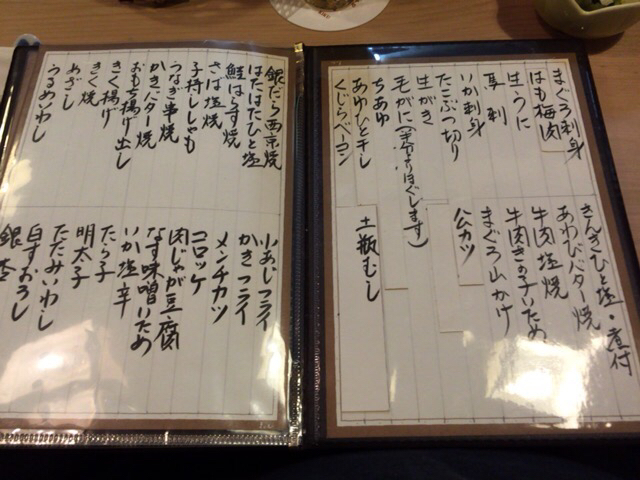 まぐろ刺身
はも梅肉
生うに
馬刺
いか刺身
たこぶつ切り
生がき
毛がに(半分よりほぐします)
ちあゆ
あゆひと干し
くじらベーコン
きんきひと塩・煮付
あわびバター焼
牛肉塩焼
牛肉きの子いため
まぐろ山かけ
ハムカツ
土瓶むし
銀だら西京焼
はたはたひと塩
鮭はらす焼
さば塩焼
子持ししゃも
うなぎ串焼
かきバター焼
おもち揚げ出し
きく揚げ
きく焼
あぎし
うるめいわし
小あじフライ
かきフライ
メンチカツ
コロッケ
肉じゃが豆腐
なす味噌いため
いか塩辛
たら子
明太子
たたみいわし
白すおろし
銀杏